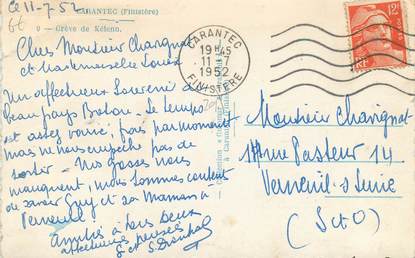 Ce 11-7-52
CARANTEC (Finistère)
9 - Grève de Kélenn.
Cher Monsieur Charignat
et Mademoiselle
Un affectueux Souvenir
beau pays Breton. Le temps
est assez varié, frais par moment
mais ne nous empêche pas de
sortir - Nos gosses nous
manquent, nous sommes content
de savoir Guy et sa Maman à
Verneuil
Amitiés à tous deux
affectueuses pensées
G et S.
CARANTEC
19H45
11-7
1952
FINISTÈRE
12F
RF
Monsieur Charignat
rue Pasteur 14
Verneuil s Seine
(S et O)